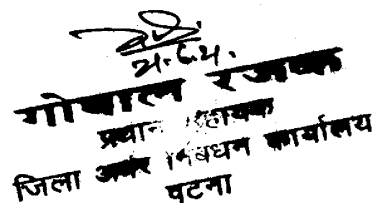 गोपाल रजक
प्रधान सहायक
जिला अवर निबंधन कार्यालय
पटना